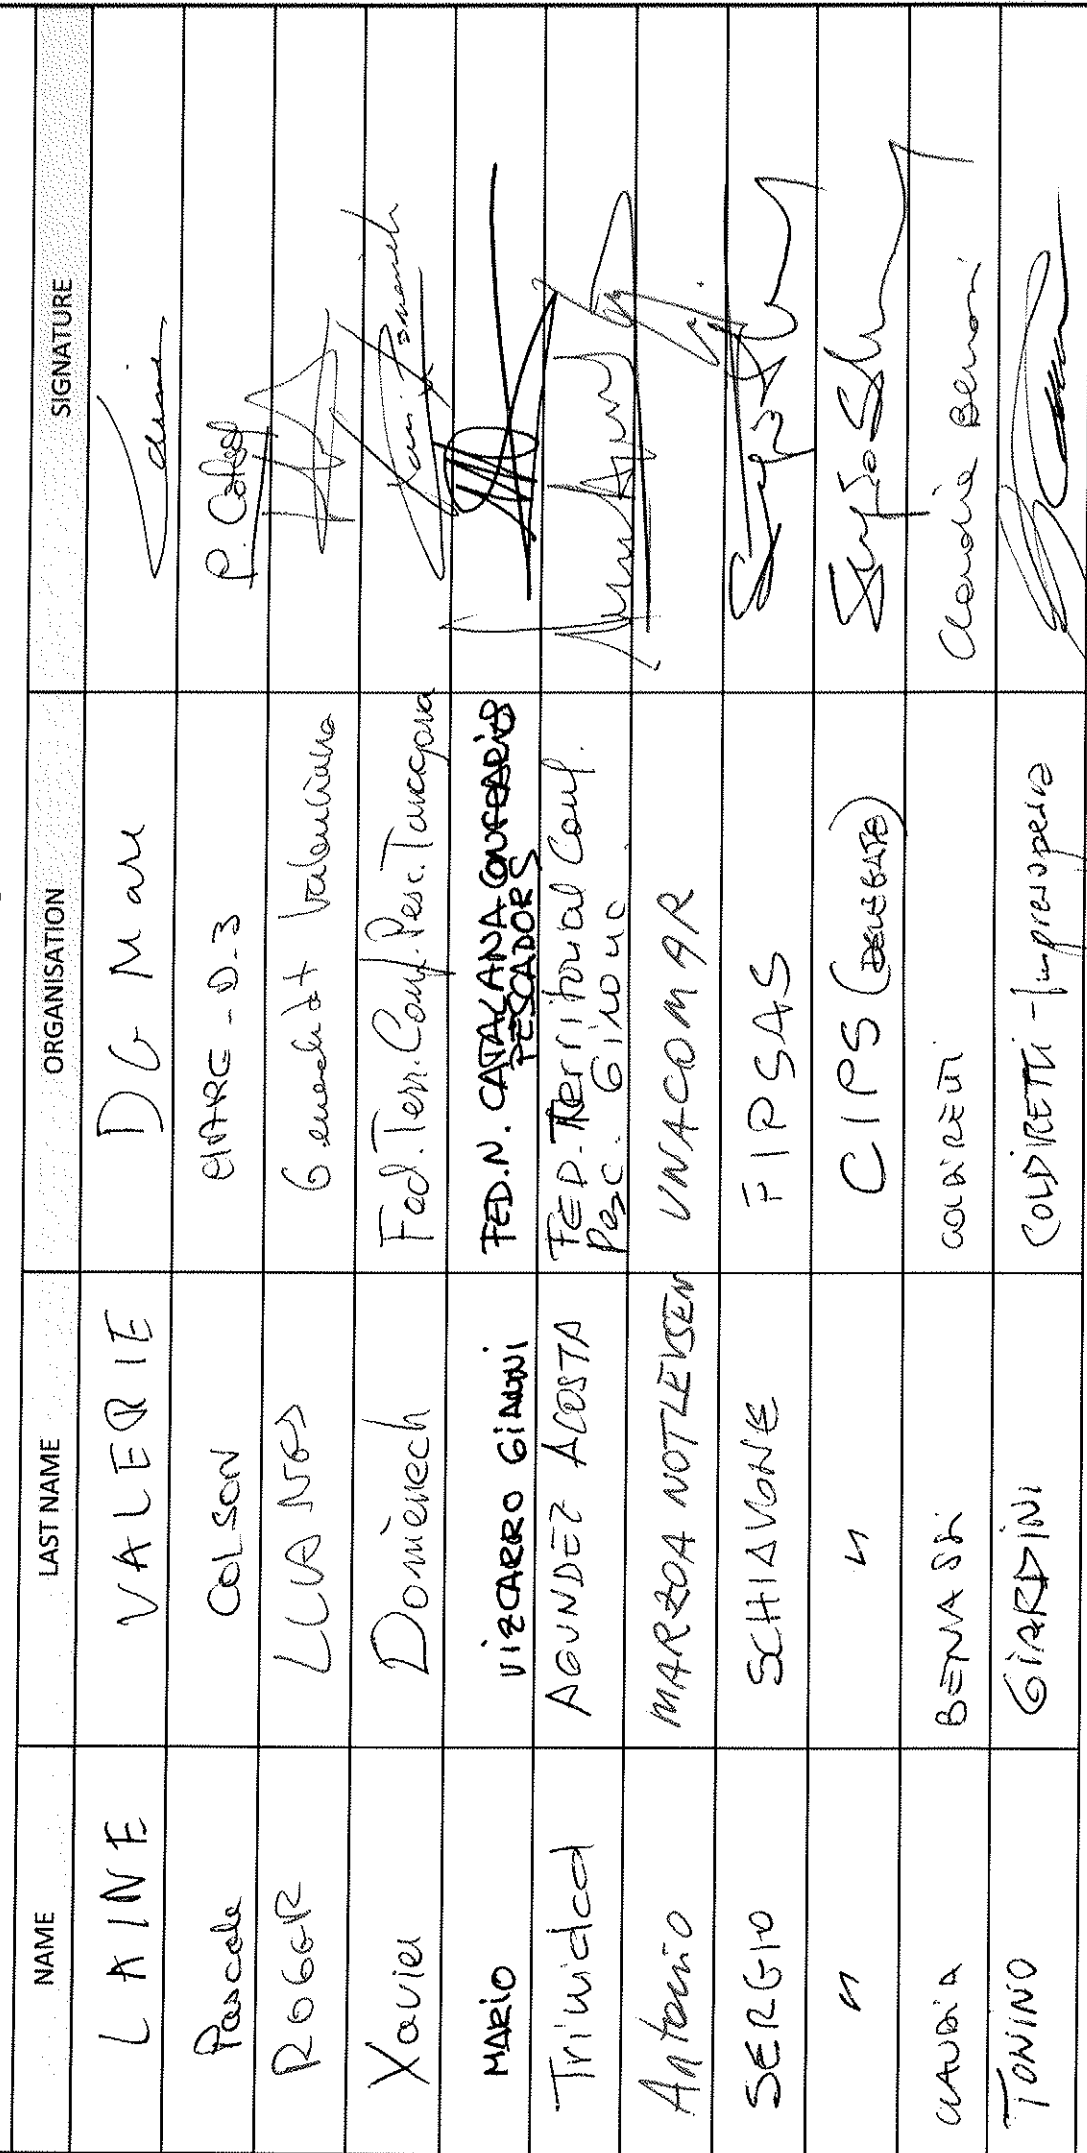 NAME LAST NAME ORGANISATION SIGNATURE
LAINE VALERIE DG Mare Laine
Pascale COLSON MARE-D-3 P. Colson
ROGER LLUANGOS Generalitat Valenciana
Xavier Domènech Fed. Terr. Conf. Pesc. Tarragona Xavi Domènech
MARIO VIZCARRO GIANNI FED.N. CATALANA CONFRARIES
PESCADORS
Trinidad AGUNDEZ ACOSTA FED. Territorial Conf.
Pesc. Girona
Antonio MARZOA NOTLEVSEN UNACOMAR
SERGIO SCHIAVONE FIPSAS
" " CIPS (DELEGATE) Sergio Sch
CLAUDIA BENASSI COLDIRETTI Claudia Benassi
TONINO GIARDINI COLDIRETTI - Impresapesca